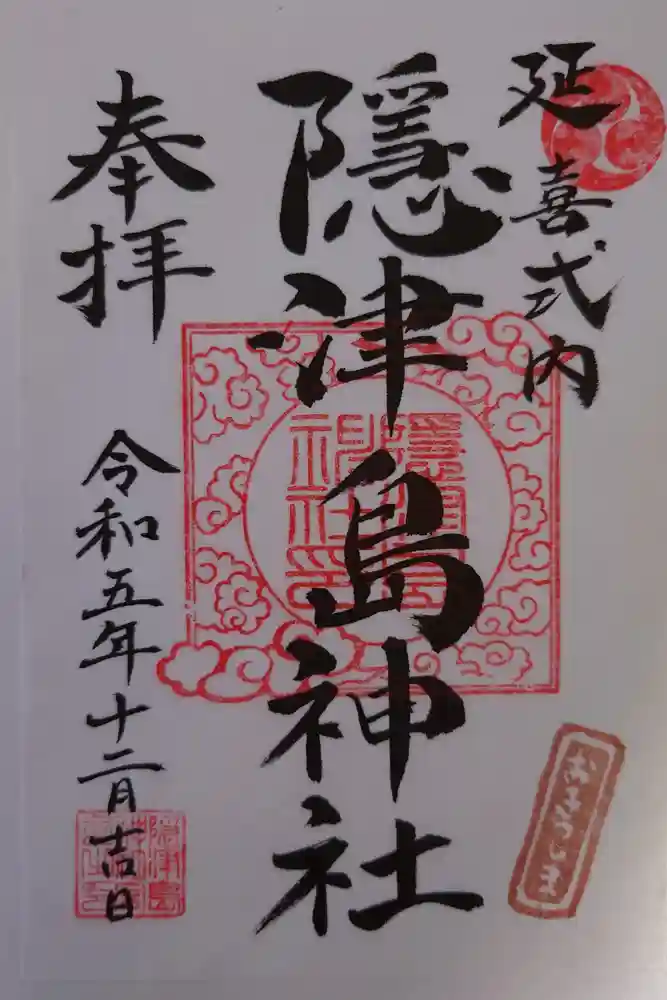 延喜式内
隱津島神社
奉拝
令和五年十二月吉日
おきつしま
隠津島